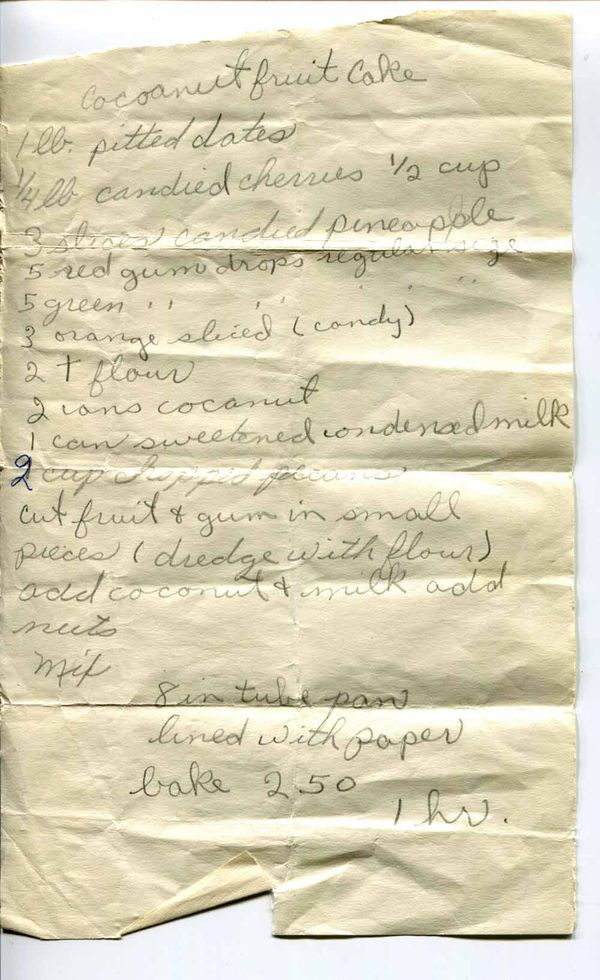 Cocoanut fruit Cake
1 lb. pitted dates
1/4 lb candied cherries 1/2 cup
3 slices candied pineapple
5 red gum drops regular size
5 green " " " " "
3 orange sliced (candy)
2 T flour
2 cans cocanut
1 can sweetened condensed milk
2 cup chopped pecans
cut fruit & gum in small
pieces (dredge with flour)
add coconut & milk add
nuts
Mix
8 in tube pan
lined with paper
bake 250
1 hr.